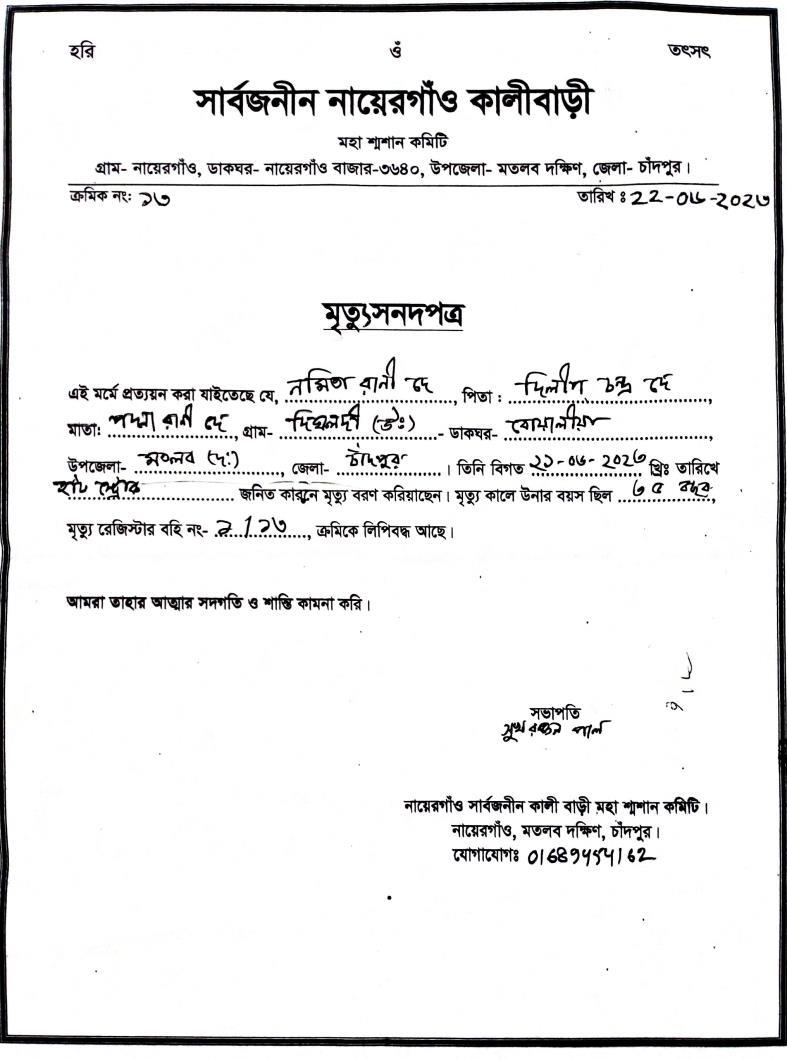 হরি ওঁ তৎসৎ
সার্বজনীন নায়েরগাঁও কালীবাড়ী
মহা শ্মশান কমিটি
গ্রাম- নায়েরগাঁও, ডাকঘর- নায়েরগাঁও বাজার-৩৬৪০, উপজেলা- মতলব দক্ষিণ, জেলা- চাঁদপুর।
ক্রমিক নং: ১৩ তারিখ ঃ 22-০৬-২0২৩
মৃত্যুসনদপত্র
এই মর্মে প্রত্যয়ন করা যাইতেছে যে, নমিতা রানী দে, পিতা : দিলীপ চন্দ্র দে,
মাতা: পদ্মা রানী দে, গ্রাম- দিঘলদী (উঃ) - ডাকঘর- বোয়ালীয়া,
উপজেলা- মতলব (দ:), জেলা- চাঁদপুর। তিনি বিগত ২১-০৬-২০২৩ খ্রিঃ তারিখে
স্ট্রোক জনিত কারনে মৃত্যু বরণ করিয়াছেন। মৃত্যু কালে উনার বয়স ছিল ৬৫ বছর,
মৃত্যু রেজিস্টার বহি নং- ২/১৩, ক্রমিকে লিপিবদ্ধ আছে।
আমরা তাহার আত্মার সদগতি ও শান্তি কামনা করি।
সভাপতি
সুখ রঞ্জন পাল
নায়েরগাঁও সার্বজনীন কালী বাড়ী মহা শ্মশান কমিটি।
নায়েরগাঁও, মতলব দক্ষিণ, চাঁদপুর।
যোগাযোগঃ 01689454162